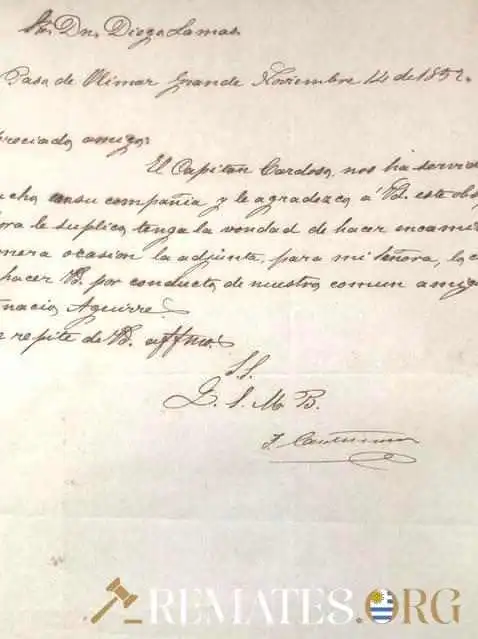 Sr. Dn. Diego Lamas.
Paso de Olimar Grande Noviembre 14 de 1852.
preciado amigo:
El Capitan Cardoso, nos ha servido
ucho en su compañia y le agradezco á V. este obs
ora le suplico, tenga la vondad de hacer encami
mera ocasion la adjunta, para mi señora, lo c
hacer V. por conducto de nuestro comun amigo
gnacio Aguirre.
e repite de V. affmo.
S.S.
Q. S. M. B.
F.
REMATES.ORG